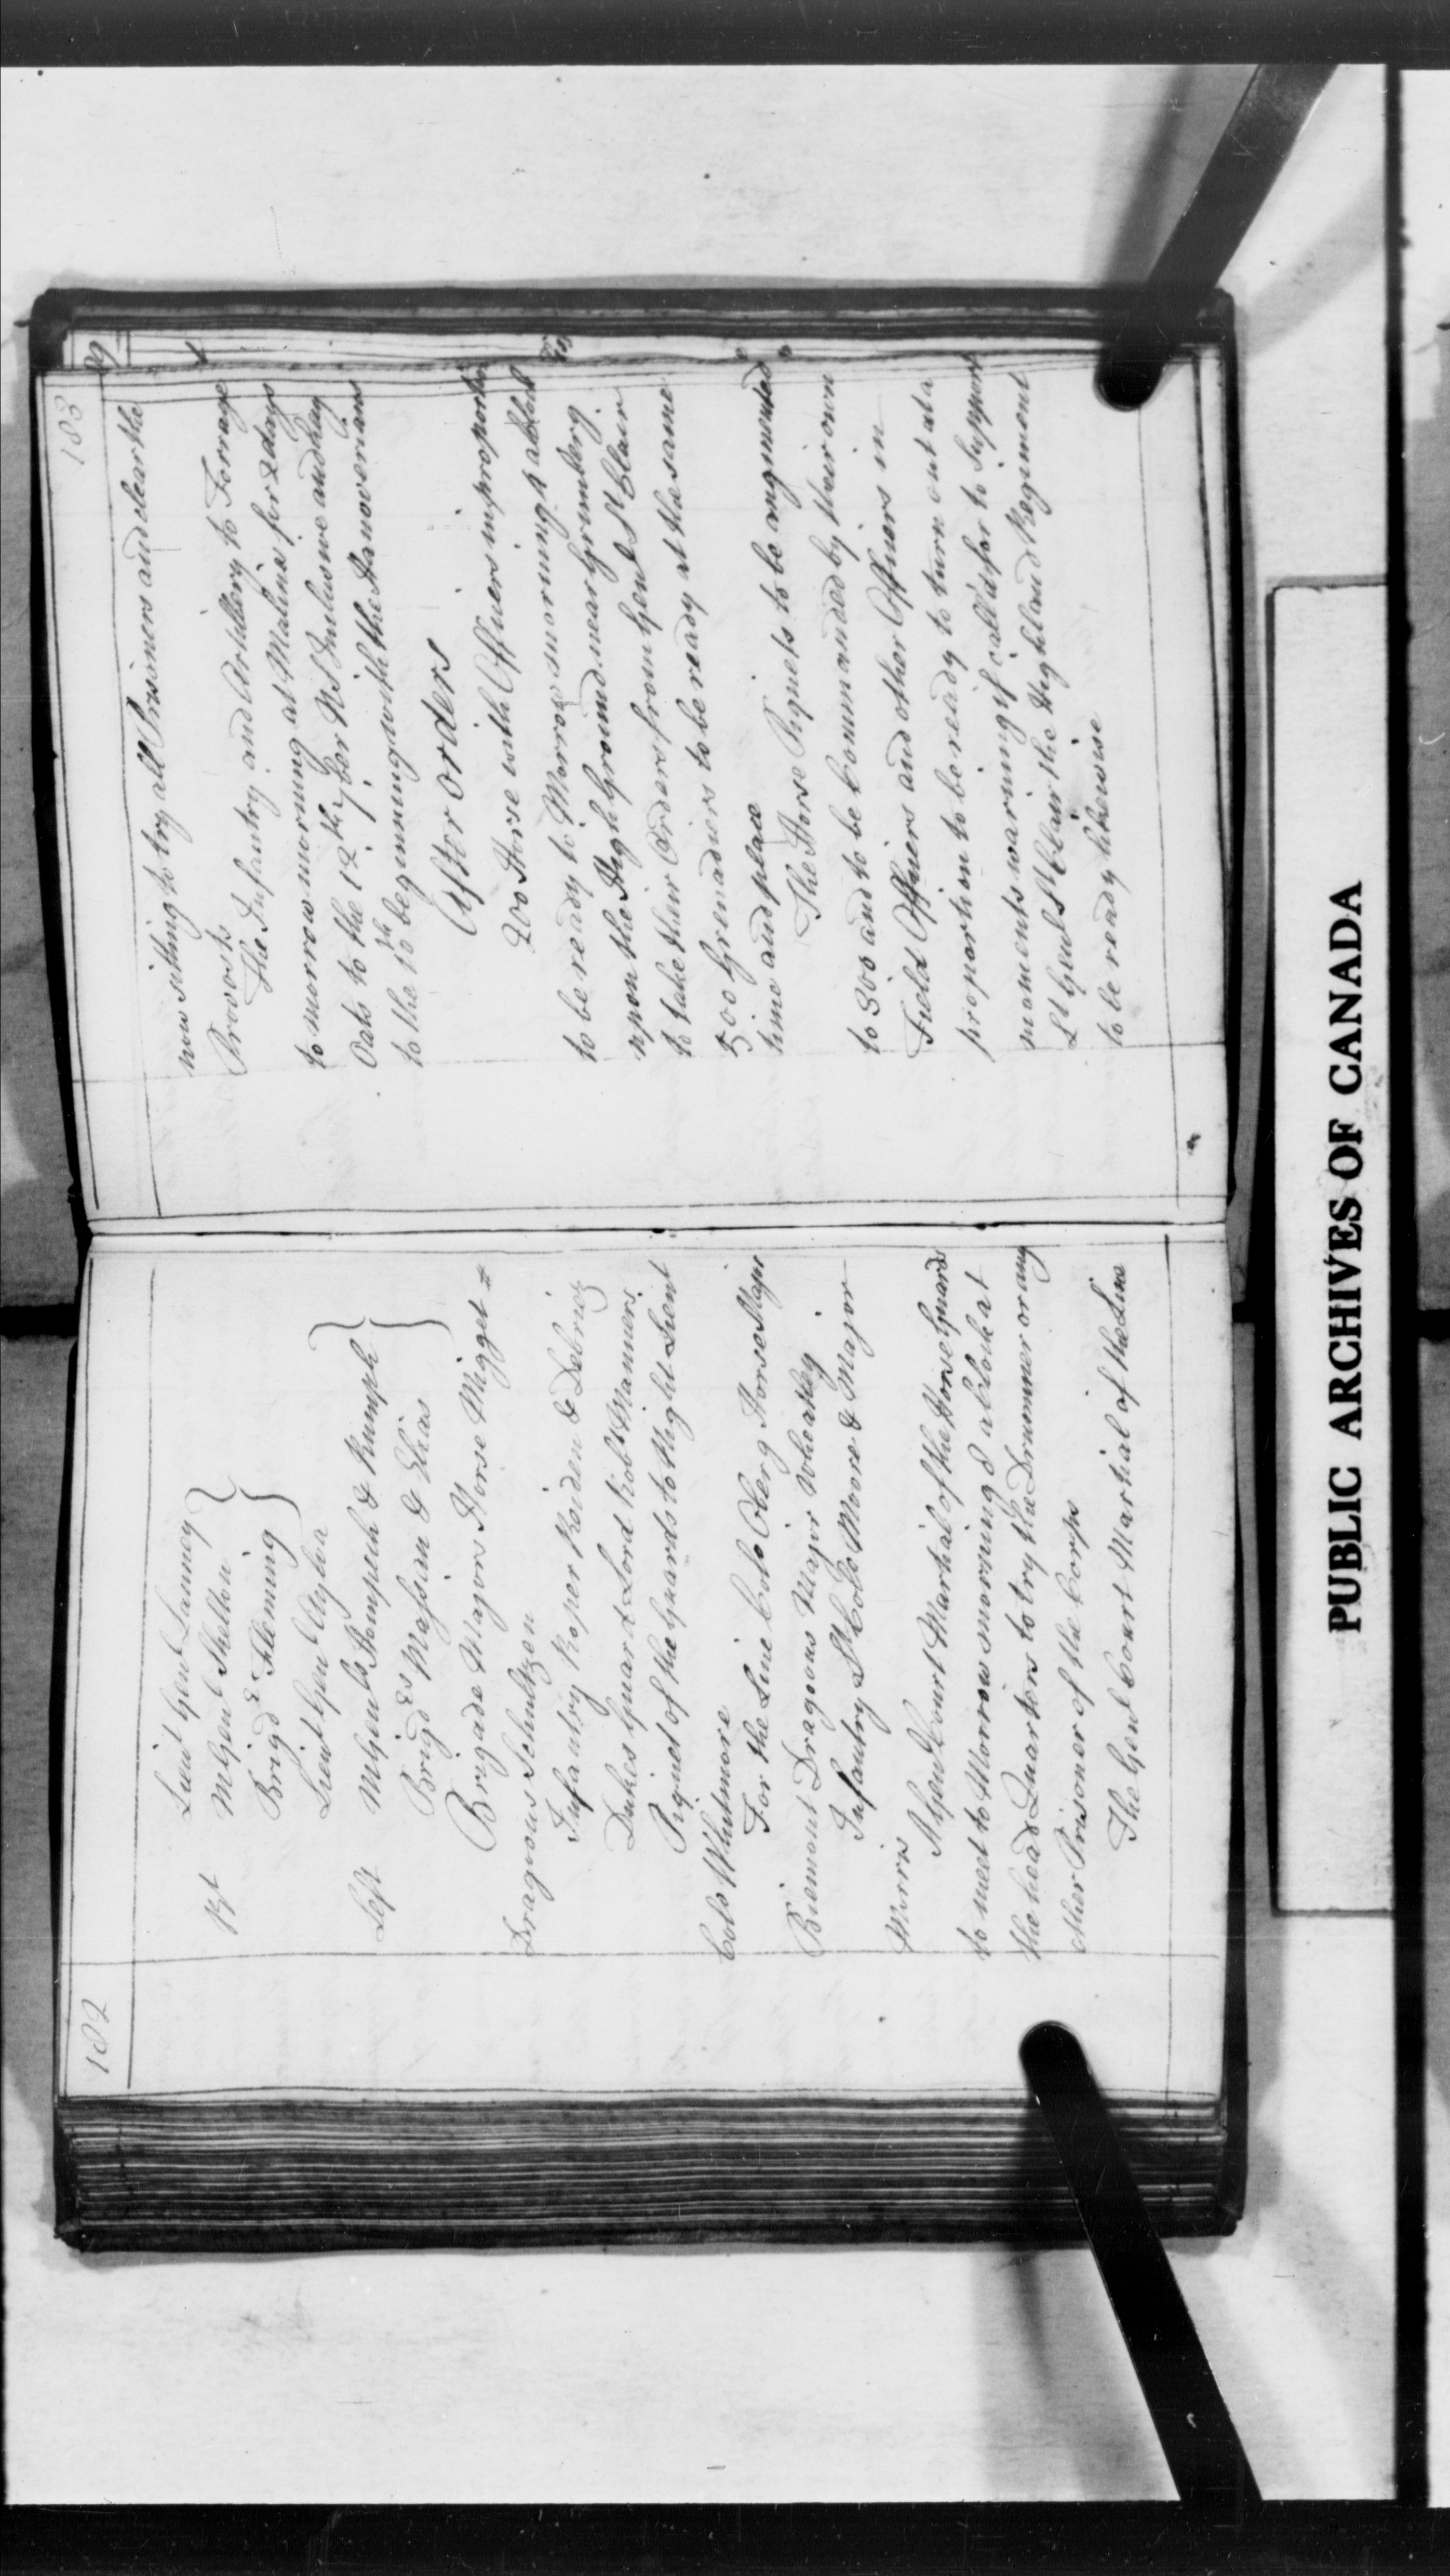 182
Lieut Genl Launey
Rt MGenl Skelton
Brigdr Fleming
Lieut Genl
Left MGenls Hompesch & Rumph
Brigdrs Massian & Elias
Brigade Majors Horse Migget =
Dragoons Schultzen
Infantry Roper Roiden & Debrioz
Dukes Guard Lord Robt Manners
Piquet of the Guards to Night Lieut
Colo Whitmore
For the Line Colo Oberg Horse Major
Biemont Dragoons Major Wheatley
Infantry Lt Colo Moore & Major
Mirris
A Genl Court Martial of the Horse Guards
to meet to Morrow morning 8 a Clock at
the head Quarters to try the Drummer or any
other Prisoner of the Corps
The Genl Court Martial of the Line
183
89
now sitting to try all Prisoners and clear the
Provosts
The Infantry and Artillery to Forrage
to morrow morning at Malines for 2 days
Oats to the 12th per NS Inclusive and Hay
to the 10th beginning with the Hanoverians
After Orders
200 Horse with Officers in proportion
to be ready to Morrow morning 4 a Clock
upon the High Ground near Grimberg
to take their Orders from Genl St Clair
500 Grenadiers to be ready at the same
time and place
The Horse Piquets to be augmented
to 300 and to be Commanded by their own
Field Officers and other Officers in
proportion to be ready to turn out at a
moments warning if call'd for to Support
Lt Genl St Clair the Highland Regiment
to be ready likewise
PUBLIC ARCHIVES OF CANADA